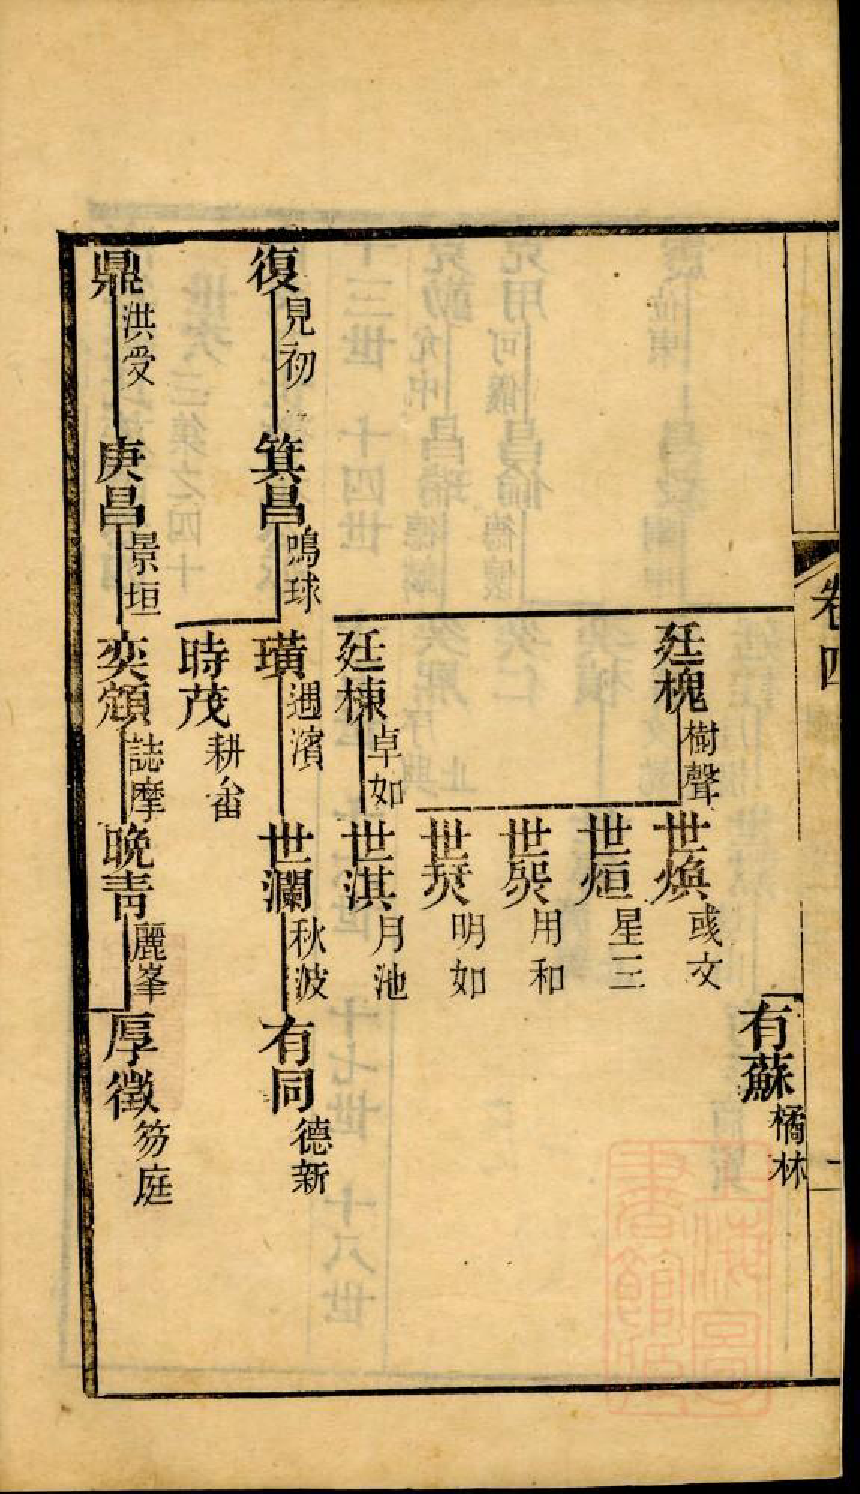 卷四
二
有蘇 橘林
廷槐 樹聲 世煥 彧文
世烜 星三
世煛 用和
世焚 明如
廷棟 卓如 世淇 月池
復 見初 箕昌 鳴球 璜 遇濱 世瀾 秋波 有同 德新
時茂 耕畬
鼎 洪受 庚昌 景垣 奕頟 誌摩 晚青 麗峯 厚徵 笏庭
上海圖書館藏